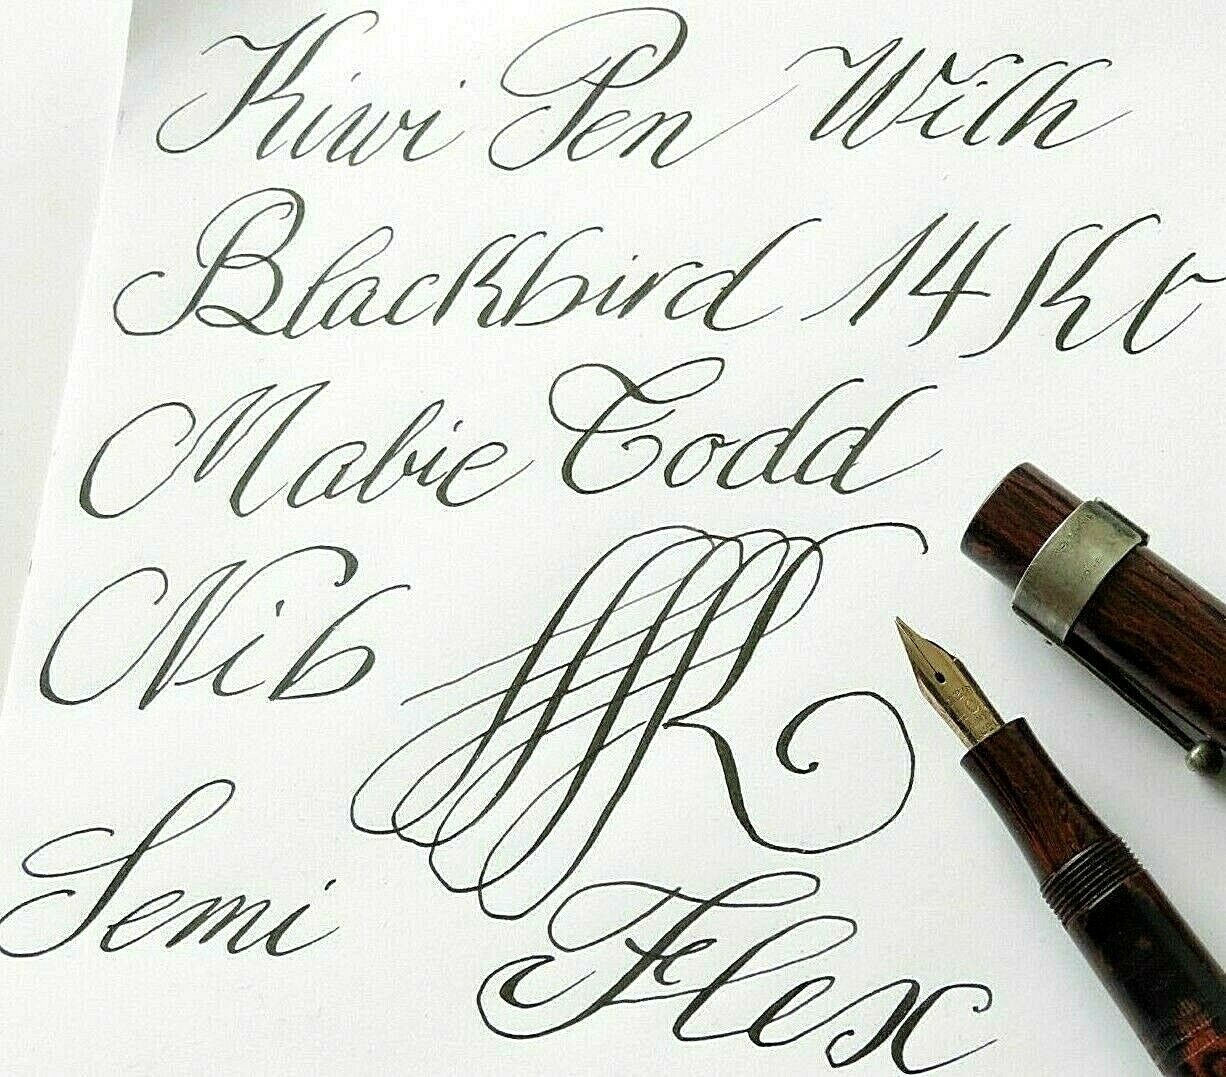 Kiwi Pen With
Blackbird 14 Kt
Mabie Todd
Nib
Semi
Flex